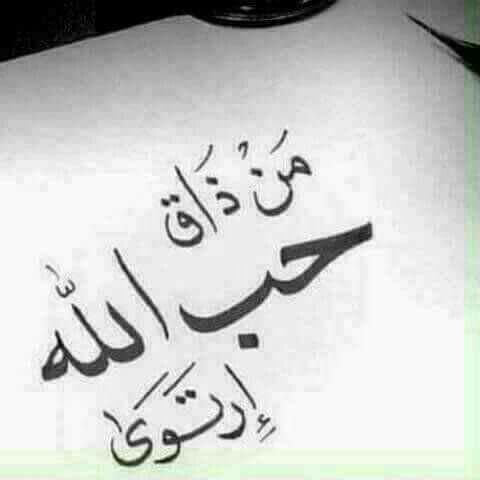 مَنْ ذَاق
حب الله
إرتَوَىٰ